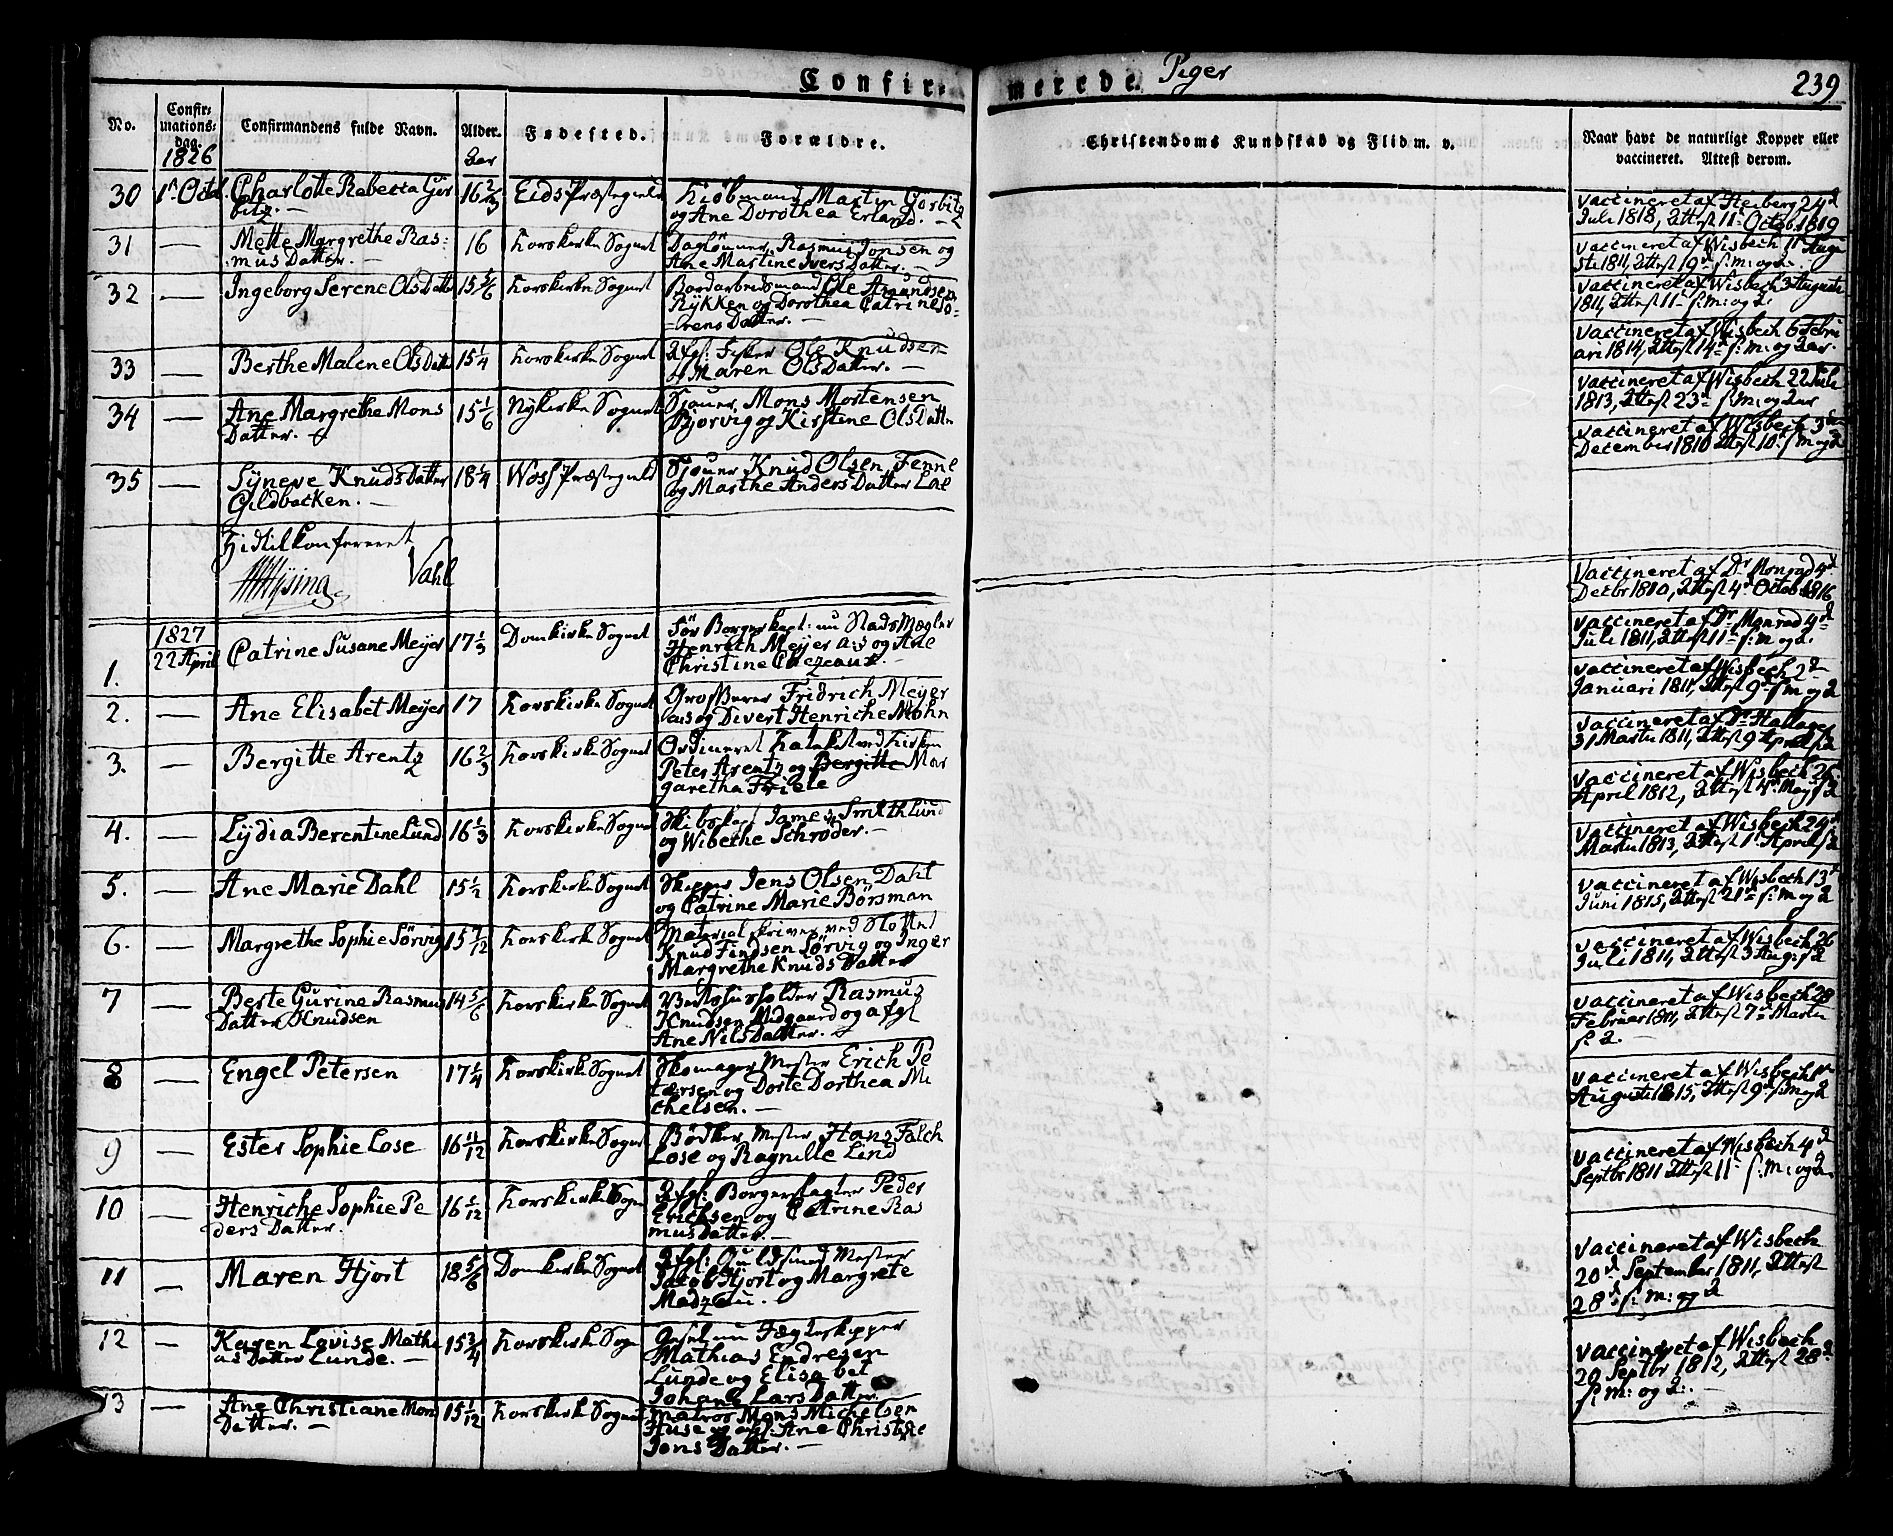 Confirmerede Piger
239
No.
Confirmations-dag.
Confirmandens fulde Navn.
Alder.
Fødested.
Forældre.
Christendoms Kundskab og Flid m. v.
Naar havt de naturlige Kopper eller
vaccineret. Attest derom.
1826
Aar
30 1ste Octbr. Charlotte Rebecca Gör
bitz. 16 2/3 Eids Præstegield Kiöbmand Martin Görbitz
og Ane Dorothea Erland.
vaccineret af Heiberg 24d
Juli 1818, Attest 11te Octob. 1819
31 — Mette Margrethe Ras:
mus Datter. — 16 Korskirke Sognet Daglönner Rasmus Jonsen og
Ane Martine Ivers Datter.
vaccineret af Wisbech 11te Augu
sti 1811, Attest 19d s: m: og A.
32 — Ingeborg Serene Ols Datter 15 5/6 Korskirke Sognet Bordarbeidsmand Ole Amundsen
Rykken og Dorothea Catrine Sö-
rens Datter. —
vaccineret af Wisbech 3 Augusti
1811, Attest 11te s: m: og A.
33 — Berthe Malene Ols Datter 15 1/4 Korskirke Sognet Afg: Fisker Ole Knudsen
Maren Ols Datter. —
vaccineret af Wisbech 6 Febru
ari 1814, Attest 14de s: m: og Aar
34 — Ane Margrethe Mons
Datter. 15 1/6 Nykirke Sognet Sjouer Mons Mortensen
Bjorvig og Kirstine Ols Datter
vaccineret af Wisbech 22 Juli
1813, Attest 23de s: m: og Aar
35 — Syneve Knuds Datter
Gildbacken. — 18 1/4 Woss Præstegield Sjouer Knud Olsen Fenne
og Marthe Anders Datter Lae
vaccineret af Wisbech 3die
December 1810 Attest 10de s: m og A
Hidtil konfereret
Vahl
1827
22 April
1. Catrine Susane Meyer 17 1/3 Domkirke Sognet för Borgerkapt: nu StadsMægler
Henrich Meyer a:s og Ane
Christine Cazeaux. —
Vaccineret af Dr Monrad 4d
Decbr 1810, Attest 4de Octob 1816
2. — Ane Elisabet Meyer 17 Korskirke Sognet Grosserer Fridrich Meyer
a:s og Divert Henriche Mohn
vaccineret af Dr Monrad 4de
Juli 1811, Attest 11te s: m: og A.
3. — Bergitte Arentz 16 2/3 Korskirke Sognet Ordineret Kateket ved Kirken
Peter Arentz og Bergitte Mar
garetha Friele
vaccineret af Wisbech 2d
Januari 1811, Attest 9de s: m og A
4. — Lydia Berentine Lund 16 1/3 Korskirke Sognet Skibskapt James Smith Lund
og Wibethe Schröder. —
vaccineret af Dr Hallager
31 Martii 1811, Attest 9 April s: A
5. — Ane Marie Dahl 15 1/2 Korskirke Sognet Skipper Jens Olsen Dahl
og Catrine Marie Börsman
vaccineret af Wisbech 26
April 1812, Attest 4de May s: A
6. — Margrethe Sophie Sörvig 15 7/12 Korskirke Sognet Materialskriver ved Slottet
Knud Findsen Sörvig og Inger
Margrethe Knuds Datter
vaccineret af Wisbech 24d
Martii 1813, Attest 1te April s: A
7 — Berte Gurine Rasmus
Datter Knudsen 14 5/6 Korskirke Sognet Vertshusholder Rasmus
Knudsen Midgaard og afgl
Ane Nils Datter. —
vaccineret af Wisbech 13d
Juni 1815, Attest 21de s: m og A
8 — Engel Petersen 17 1/4 Korskirke Sognet Skomager Mester Erich Pe
tersen og Dorte Dorthea Mi
chelsen. —
vaccineret af Wisbech 26
Juli 1811, Attest 3 Aug: s: A
9 — Ester Sophie Lose 16 11/12 Korskirke Sognet Bödker Mester Hans Falch
Lose og Ragnille Lind
vaccineret af Wisbech 28
Februar 1811, Attest 7de Martii
s: A. —
10 — Henriche Sophie Pe
ders Datter. 16 1/12 Korskirke Sogn Afgl: Borgerslagter Peder
Erichsen og Catrine Ras
mus Datter. —
vaccineret af Wisbech 1te
Augusti 1815, Attest 9de s: m og A
11 — Maren Hjort 18 5/6 Domkirke Sognet Afgl: Guldsmed Mester
Jacob Hjort og Margrete
Madzeau.
vaccineret af Wisbech 4d
Septbr 1811 Attest 11te s: M: og A.
12 — Karen Lovise Mathi
as Datter Lunde. — 15 3/4 Korskirke Sogn Jægtskipper
Mathias Endresen
Lunde og Elisabet
Johane Lars Datter.
vaccineret af Wisbech
20d September 1811, Attest
28d s: m: og A
13 Ane Christiane Mons
Datter. — 15 1/12 Korskirke Sognet Matros Mons Michelsen
Huse og afgl. Ane Christine
Jons Datter. —
vaccineret af Wisbech
20 Septbr 1812, Attest 28d
s: m: og A. —